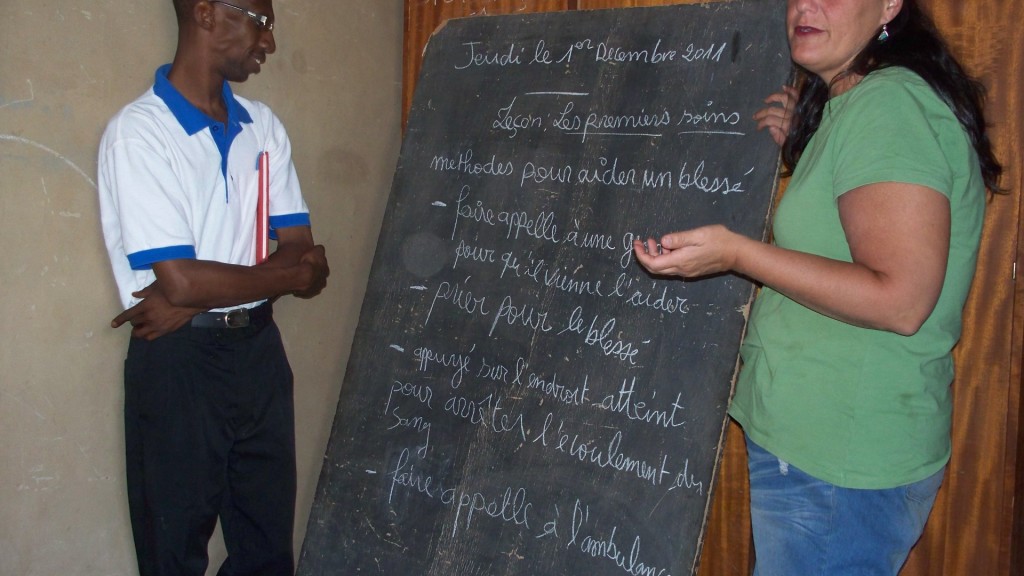 Jeudi le 1er Decembre 2011
Leçon: Les premiers soins
methodes pour aider un blessé
- faire appelle à une
pour qu'il vienne l'aider
- prier pour le blessé
- appuyé sur l'endroit atteint
pour arrêter l'écoulement du
sang
- faire appelle à l'ambulanc